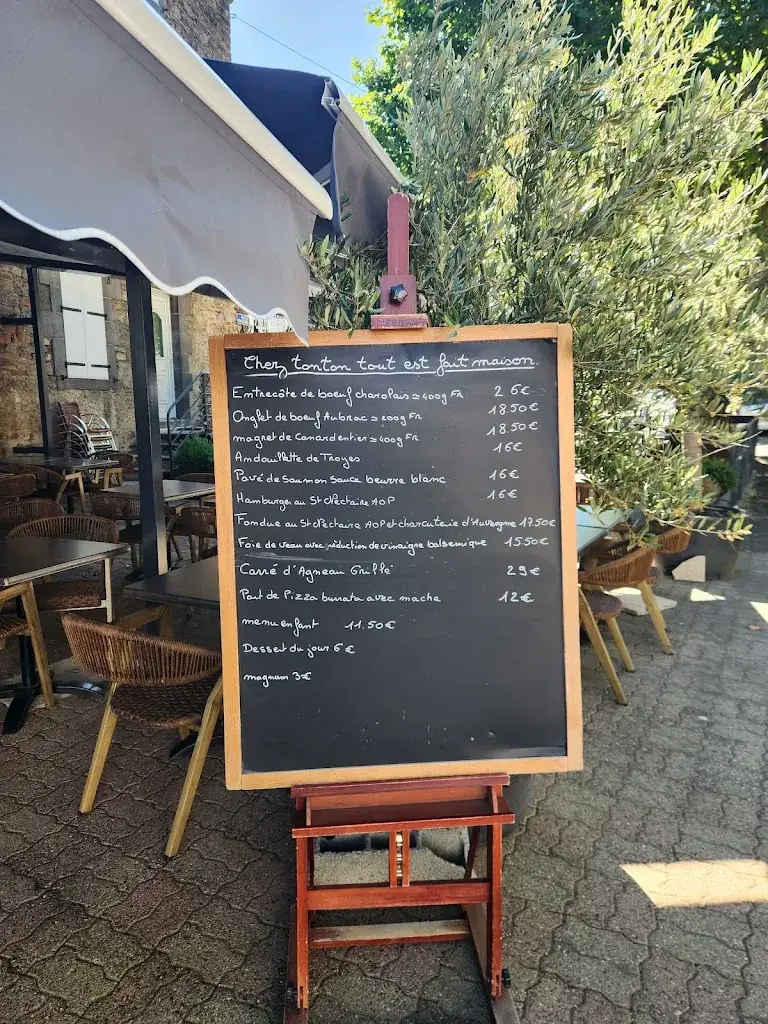 Chez tonton tout est fait maison.
Entrecôte de boeuf charolais ≃ 400g FR 26€
Onglet de boeuf Aubrac ≃ 200g FR 18.50€
magret de Canard entier ≃ 400g FR 18.50€
Andouillette de Troyes 16€
Pavé de Saumon Sauce beurre blanc 16€
Hamburger au St Nectaire AOP 16€
Fondue au St Nectaire AOP et charcuterie d'Auvergne 17.50€
Foie de veau avec réduction de vinaigre balsamique 15.50€
Carré d'Agneau Grillé 29€
Part de Pizza burrata avec mache 12€
menu enfant 11.50€
Dessert du jour 6€
magnum 3€